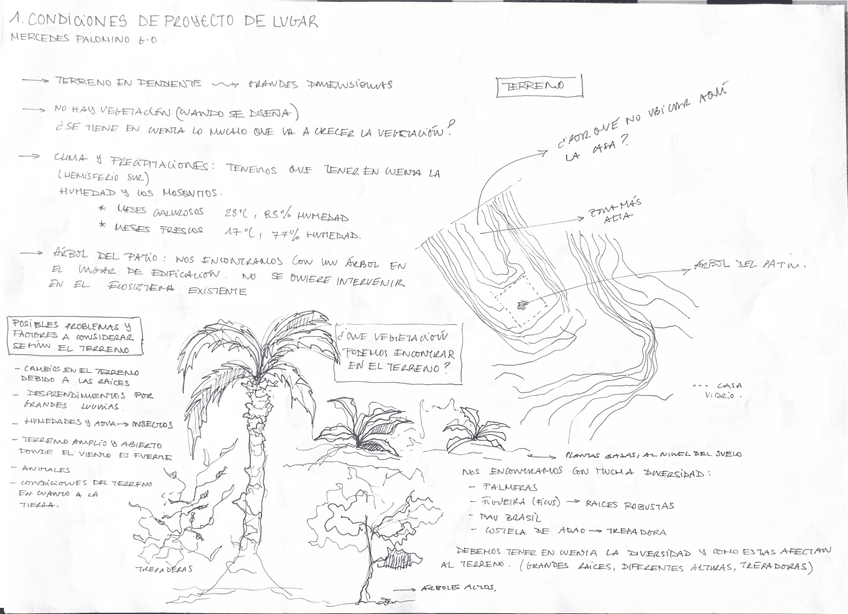 1. CONDICIONES DE PROYECTO DE LUGAR
MERCEDES PALOMINO 6-0.
→ TERRENO EN PENDIENTE ⟿ GRANDES DIMENSIONES
→ NO HAY VEGETACIÓN (CUANDO SE DISEÑA)
¿SE TIENE EN CUENTA LO MUCHO QUE VA A CRECER LA VEGETACIÓN?
→ CLIMA Y PRECIPITACIONES: TENEMOS QUE TENER EN CUENTA LA
(HEMISFERIO SUR)
HUMEDAD Y LOS MOSQUITOS.
* MESES CALUROSOS 28°C, 83% HUMEDAD
* MESES FRESCOS 17°C, 77% HUMEDAD.
→ ÁRBOL DEL PATIO: NOS ENCONTRAMOS CON UN ÁRBOL EN
EL LUGAR DE EDIFICACIÓN. NO SE QUIERE INTERVENIR
EN EL ECOSISTEMA EXISTENTE
TERRENO
¿POR QUÉ NO UBICAR AQUÍ
LA CASA?
ZONA MÁS
ALTA
ÁRBOL DEL PATIO.
... CASA
VIDRIO.
POSIBLES PROBLEMAS Y
FACTORES A CONSIDERAR
SEGÚN EL TERRENO
- CAMBIOS EN EL TERRENO
DEBIDO A LAS RAÍCES
- DESPRENDIMIENTOS POR
GRANDES LLUVIAS.
- HUMEDADES Y AGUA → INSECTOS
- TERRENO AMPLIO Y ABIERTO
DONDE EL VIENTO ES FUERTE
- ANIMALES
- CONDICIONES DEL TERRENO
EN CUANTO A LA
TIERRA.
¿QUE VEGETACIÓN
PODEMOS ENCONTRAR
EN EL TERRENO?
TREPADERAS
PLANTAS BAJAS, AL NIVEL DEL SUELO
NOS ENCONTRAMOS CON MUCHA DIVERSIDAD:
- PALMERAS
- FIGUEIRA (FICUS) → RAICES ROBUSTAS
- PAU BRASIL
- COSTELA DE ADAO → TREPADORA
DEBEMOS TENER EN CUENTA LA DIVERSIDAD Y COMO ESTAS AFECTAN
AL TERRENO. (GRANDES RAÍCES, DIFERENTES ALTURAS, TREPADORAS)
→ ÁRBOLES ALTOS.